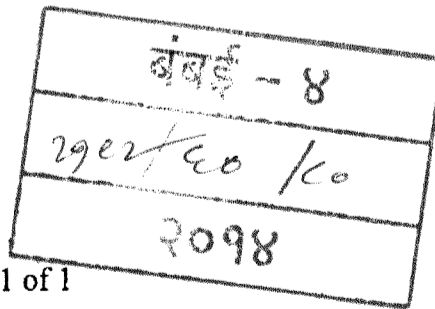 बंबई - ४
२१८२/६० /८०
२०१४
1 of 1